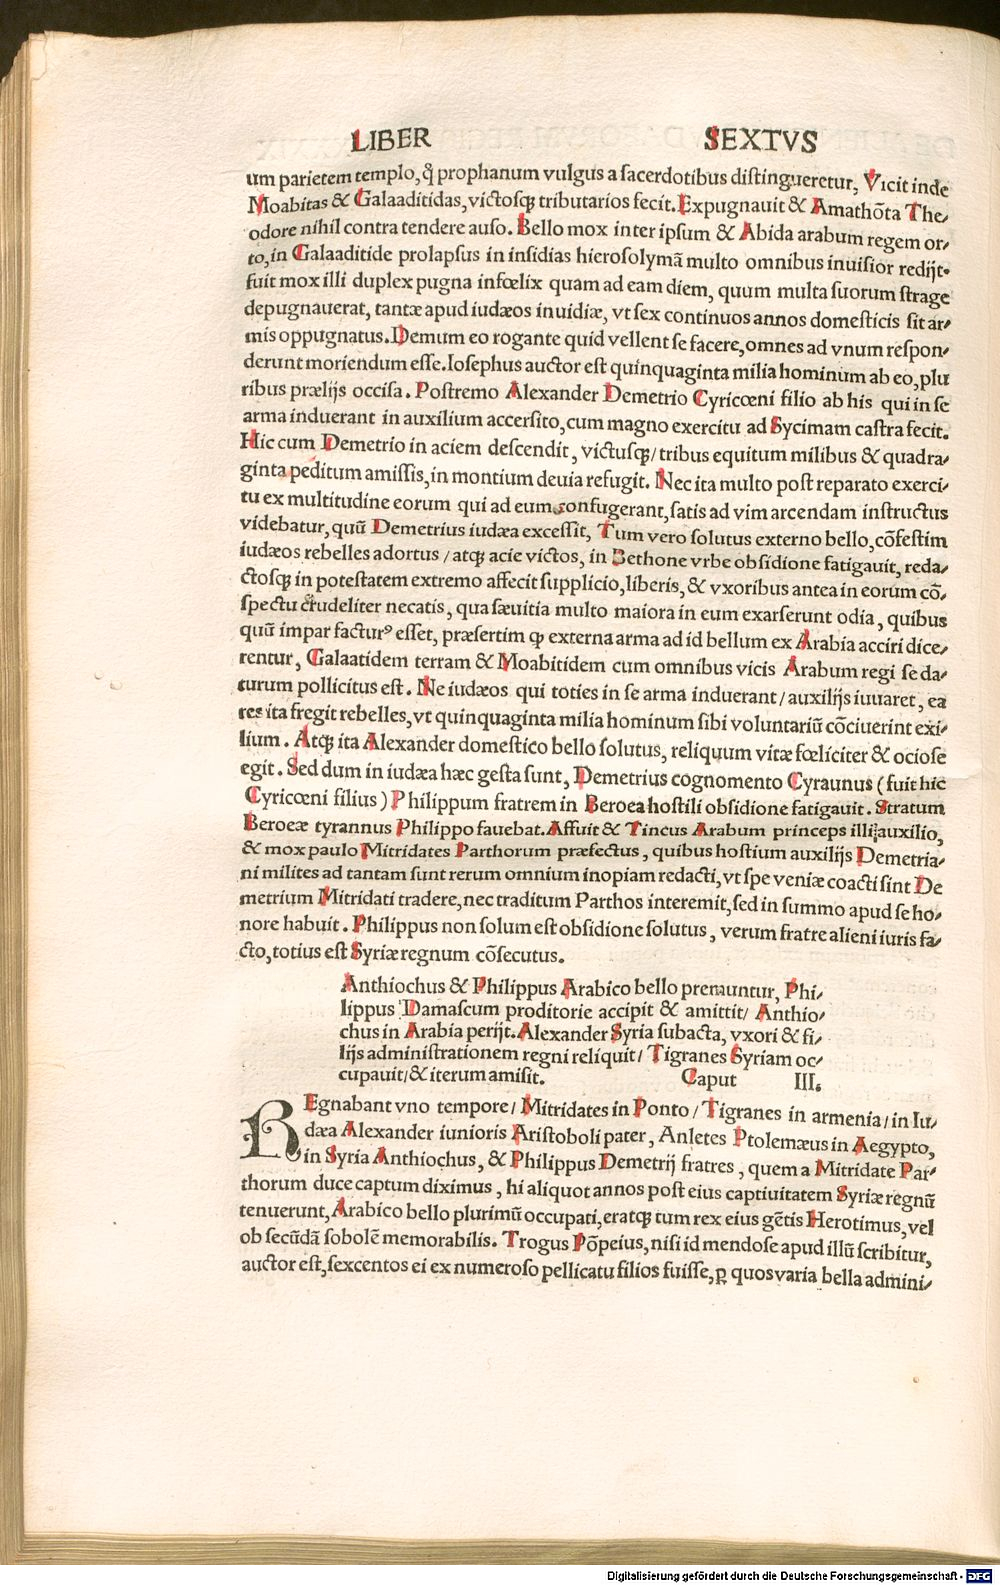 LIBER SEXTVS
um parietem templo, q̃ prophanum vulgus a sacerdotibus distingueretur, Vicit inde
Moabitas & Galaaditidas, victosq; tributarios fecit. Expugnauit & Amathõta The/
odore nihil contra tendere auso. Bello mox inter ipsum & Abida arabum regem or/
to, in Galaaditide prolapsus in insidias hierosolymã multo omnibus inuisior redijt.
fuit mox illi duplex pugna infœlix quam ad eam diem, quum multa suorum strage
depugnauerat, tantæ apud iudæos inuidiæ, vt sex continuos annos domesticis sit ar/
mis oppugnatus. Demum eo rogante quid vellent se facere, omnes ad vnum respon/
derunt moriendum esse. Iosephus auctor est quinquaginta milia hominum ab eo, plu
ribus prælijs occisa. Postremo Alexander Demetrio Cyricœni filio ab his qui in se
arma induerant in auxilium accersito, cum magno exercitu ad Sycimam castra fecit.
Hic cum Demetrio in aciem descendit, victusq;/ tribus equitum milibus & quadra/
ginta peditum amissis, in montium deuia refugit. Nec ita multo post reparato exerci/
tu ex multitudine eorum qui ad eum confugerant, satis ad vim arcendam instructus
videbatur, quũ Demetrius iudæa excessit, Tum vero solutus externo bello, cõfestim
iudæos rebelles adortus / atq; acie victos, in Bethone vrbe obsidione fatigauit, reda/
ctosq; in potestatem extremo affecit supplicio, liberis, & vxoribus antea in eorum cõ/
spectu crudeliter necatis, qua sæuitia multo maiora in eum exarserunt odia, quibus
quũ impar facturꝰ esset, præsertim ꝙ externa arma ad id bellum ex Arabia acciri dice/
rentur, Galaatidem terram & Moabitidem cum omnibus vicis Arabum regi se da/
turum pollicitus est. Ne iudæos qui toties in se arma induerant / auxilijs iuuaret, ea
res ita fregit rebelles, vt quinquaginta milia hominum sibi voluntariũ cõciuerint exi/
lium. Atq; ita Alexander domestico bello solutus, reliquum vitæ fœliciter & ociose
egit. Sed dum in iudæa hæc gesta sunt, Demetrius cognomento Cyraunus (fuit hic
Cyricœni filius) Philippum fratrem in Beroea hostili obsidione fatigauit. Stratum
Beroeæ tyrannus Philippo fauebat. Affuit & Tincus Arabum princeps illi auxilio,
& mox paulo Mitridates Parthorum præfectus, quibus hostium auxilijs Demetria/
ni milites ad tantam sunt rerum omnium inopiam redacti, vt spe veniæ coacti sint De
metrium Mitridati tradere, nec traditum Parthos interemit, sed in summo apud se ho/
nore habuit. Philippus non solum est obsidione solutus, verum fratre alieni iuris fa/
cto, totius est Syriæ regnum cõsecutus.
Anthiochus & Philippus Arabico bello premuntur, Phi/
lippus Damascum proditorie accipit & amittit / Anthio/
chus in Arabia perijt. Alexander Syria subacta, vxori & fi/
lijs administrationem regni reliquit / Tigranes Syriam oc/
cupauit / & iterum amisit. Caput III.
REgnabant vno tempore / Mitridates in Ponto / Tigranes in armenia / in Iu/
dæa Alexander iunioris Aristoboli pater, Anletes Ptolemæus in Aegypto,
in Syria Anthiochus, & Philippus Demetrij fratres, quem a Mitridate Par/
thorum duce captum diximus, hi aliquot annos post eius captiuitatem Syriæ regnũ
tenuerunt, Arabico bello plurimũ occupati, eratq; tum rex eius gẽtis Herotimus, vel
ob secũdã sobolẽ memorabilis. Trogus Põpeius, nisi id mendose apud illũ scribitur,
auctor est, sexcentos ei ex numeroso pellicatu filios fuisse, ꝑ quos varia bella admini/
Digitalisierung gefördert durch die Deutsche Forschungsgemeinschaft - DFG